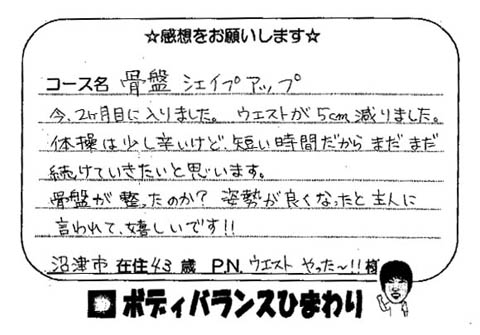 ☆感想をお願いします☆
コース名 骨盤 シェイプアップ
今、2ヶ月目に入りました。 ウエストが5cm減りました。
体操は少し辛いけど、短い時間だからまだまだ
続けていきたいと思います。
骨盤が整ったのか？ 姿勢が良くなったと主人に
言われて、嬉しいです!!
沼津市 在住43歳 P.N. ウエスト やった〜!!様
ボディバランスひまわり